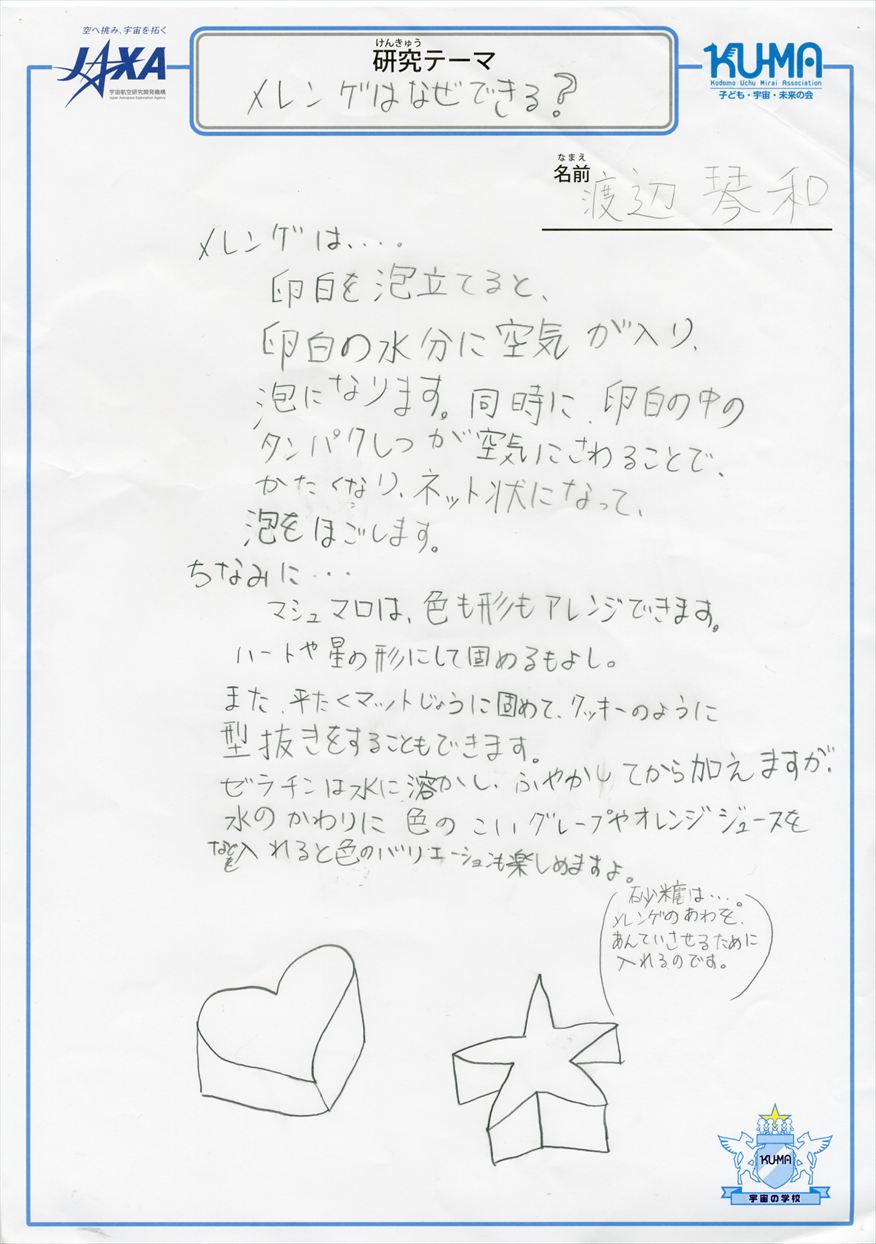 空へ挑み、宇宙を拓く
JAXA
宇宙航空研究開発機構
Japan Aerospace Exploration Agency
けんきゅう
研究テーマ
メレンゲはなぜできる?
KU-MA
Kodomo Uchu Mirai Association
子ども・宇宙・未来の会
なまえ
名前
渡辺 琴和
メレンゲは、・・・。
卵白を泡立てると、
卵白の水分に空気が入り、
泡になります。同時に、卵白の中の
タンパクしつが空気にさわることで、
かたくなり、ネット状になって、
泡をほごします。
ちなみに・・・
マシュマロは、色も形もアレンジできます。
ハートや星の形にして固めるもよし。
また、平たくマットじょうに固めて、クッキーのように
型抜きをすることもできます。
ゼラチンは水に溶かし、ふやかしてから加えますが、
水のかわりに色のこいグレープやオレンジジュースを
などを入れると色のバリエーションも楽しめますよ。
砂糖は・・・。
メレンゲのあわを、
あんていさせるために
入れるのです。
KU-MA
宇宙の学校